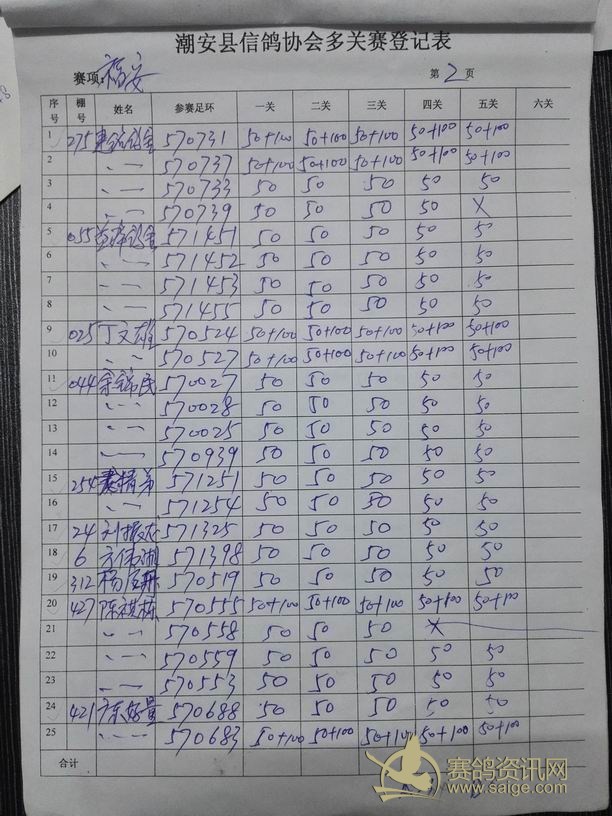 潮安县信鸽协会多关赛登记表
赛项: 福安 第 2 页
序号 棚号 姓名 参赛足环 一关 二关 三关 四关 五关 六关
1 275 570731 50+100 50+100 50+100 50+100 50+100
2 〃 570737 50+100 50+100 50+100 50+100 50+100
3 〃 570733 50 50 50 50 50
4 〃 570739 50 50 50 50 X
5 055 571451 50 50 50 50 50
6 〃 571452 50 50 50 50 50
7 〃 571453 50 50 50 50 50
8 〃 571455 50 50 50 50 50
9 025 丁文雄 570524 50+100 50+100 50+100 50+100 50+100
10 〃 570527 50+100 50+100 50+100 50+100 50+100
11 044 余锦民 570027 50 50 50 50 50
12 〃 570028 50 50 50 50 50
13 〃 570025 50 50 50 50 50
14 〃 570939 50 50 50 50 50
15 254 571251 50 50 50 50 50
16 〃 571254 50 50 50 50 50
17 24 571325 50 50 50 50 50
18 6 571398 50 50 50 50 50
19 312 570519 50 50 50 50 50
20 427 570555 50+100 50+100 50+100 50+100 50+100
21 〃 570558 50 50 50 X
22 〃 570559 50 50 50 50 50
23 〃 570553 50 50 50 50 50
24 421 570688 50 50 50 50 50
25 〃 570683 50+100 50+100 50+100 50+100 50+100
合计
赛鸽资讯网
www.saige.com